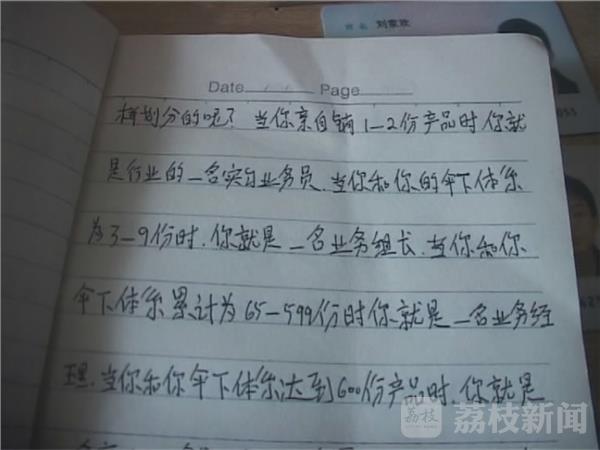 姓名 刘家欢
Date
Page
样划分的呢？当你亲自销1—2份产品时你就
是行业的一名实习业务员.当你和你的伞下体系
为3—9份时.你就是一名业务组长.当你和你
伞下体系累计为65—599份时你就是一名业务经
理.当你和你伞下体系达到600份产品时.你就是
荔枝
荔枝新闻